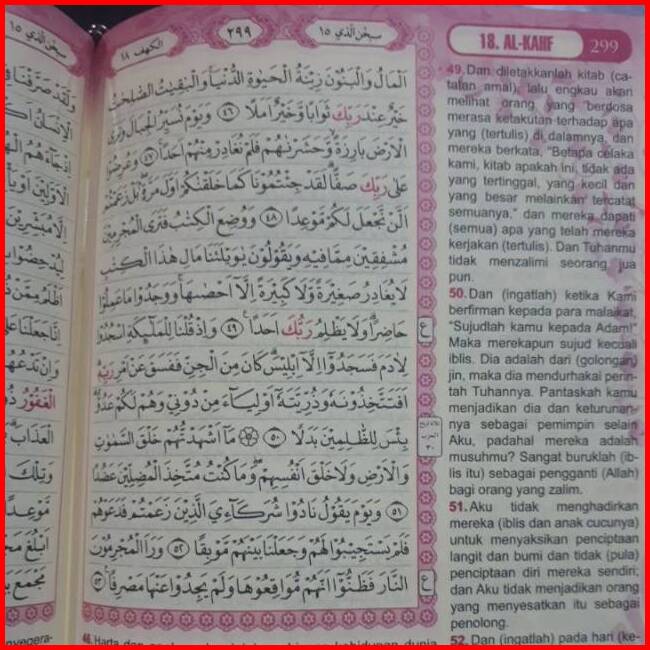 سبحن الذي ١٥
٢٩٩
الكهف ١٨
اَلْمَالُ وَالْبَنُوْنَ زِيْنَةُ الْحَيٰوةِ الدُّنْيَا وَالْبٰقِيٰتُ الصّٰلِحٰتُ
خَيْرٌ عِنْدَ رَبِّكَ ثَوَابًا وَّخَيْرٌ اَمَلًا ﴿٤٦﴾ وَيَوْمَ نُسَيِّرُ الْجِبَالَ وَتَرَى
الْاَرْضَ بَارِزَةً وَّحَشَرْنٰهُمْ فَلَمْ نُغَادِرْ مِنْهُمْ اَحَدًا ﴿٤٧﴾ وَعُرِضُوْا
عَلٰى رَبِّكَ صَفًّا لَقَدْ جِئْتُمُوْنَا كَمَا خَلَقْنٰكُمْ اَوَّلَ مَرَّةٍ بَلْ زَعَمْتُمْ
اَلَّنْ نَّجْعَلَ لَكُمْ مَّوْعِدًا ﴿٤٨﴾ وَوُضِعَ الْكِتٰبُ فَتَرَى الْمُجْرِمِيْنَ
مُشْفِقِيْنَ مِمَّا فِيْهِ وَيَقُوْلُوْنَ يٰوَيْلَتَنَا مَالِ هٰذَا الْكِتٰبِ
لَا يُغَادِرُ صَغِيْرَةً وَّلَا كَبِيْرَةً اِلَّآ اَحْصٰىهَا وَوَجَدُوْا مَا عَمِلُوْا
حَاضِرًا وَلَا يَظْلِمُ رَبُّكَ اَحَدًا ﴿٤٩﴾ وَاِذْ قُلْنَا لِلْمَلٰٓئِكَةِ اسْجُدُوْا
لِاٰدَمَ فَسَجَدُوْٓا اِلَّآ اِبْلِيْسَ كَانَ مِنَ الْجِنِّ فَفَسَقَ عَنْ اَمْرِ رَبِّهٖ
اَفَتَتَّخِذُوْنَهٗ وَذُرِّيَّتَهٗٓ اَوْلِيَاۤءَ مِنْ دُوْنِيْ وَهُمْ لَكُمْ عَدُوٌّ
بِئْسَ لِلظّٰلِمِيْنَ بَدَلًا ﴿٥٠﴾ مَآ اَشْهَدْتُّهُمْ خَلْقَ السَّمٰوٰتِ
وَالْاَرْضِ وَلَا خَلْقَ اَنْفُسِهِمْ وَمَا كُنْتُ مُتَّخِذَ الْمُضِلِّيْنَ عَضُدًا
﴿٥١﴾ وَيَوْمَ يَقُوْلُ نَادُوْا شُرَكَاۤءِيَ الَّذِيْنَ زَعَمْتُمْ فَدَعَوْهُمْ
فَلَمْ يَسْتَجِيْبُوْا لَهُمْ وَجَعَلْنَا بَيْنَهُمْ مَّوْبِقًا ﴿٥٢﴾ وَرَاَ الْمُجْرِمُوْنَ
النَّارَ فَظَنُّوْٓا اَنَّهُمْ مُّوَاقِعُوْهَا وَلَمْ يَجِدُوْا عَنْهَا مَصْرِفًا ﴿٥٣﴾
18. AL-KAHF 299
49. Dan diletakkanlah kitab (ca-
tatan amal), lalu engkau akan
melihat orang yang berdosa
merasa ketakutan terhadap apa
yang (tertulis) di dalamnya, dan
mereka berkata, "Betapa celaka
kami, kitab apakah ini, tidak ada
yang tertinggal, yang kecil dan
yang besar melainkan tercatat
semuanya," dan mereka dapati
(semua) apa yang telah mereka
kerjakan (tertulis). Dan Tuhanmu
tidak menzalimi seorang jua
pun.
50. Dan (ingatlah) ketika Kami
berfirman kepada para malaikat,
"Sujudlah kamu kepada Adam!"
Maka merekapun sujud kecuali
iblis. Dia adalah dari (golongan)
jin, maka dia mendurhakai perin-
tah Tuhannya. Pantaskah kamu
menjadikan dia dan keturunan-
nya sebagai pemimpin selain
Aku, padahal mereka adalah
musuhmu? Sangat buruklah (ib-
lis itu) sebagai pengganti (Allah)
bagi orang yang zalim.
51. Aku tidak menghadirkan
mereka (iblis dan anak cucunya)
untuk menyaksikan penciptaan
langit dan bumi dan tidak (pula)
penciptaan diri mereka sendiri;
dan Aku tidak menjadikan orang
yang menyesatkan itu sebagai
penolong.
52. Dan (ingatlah) pada hari (ke-